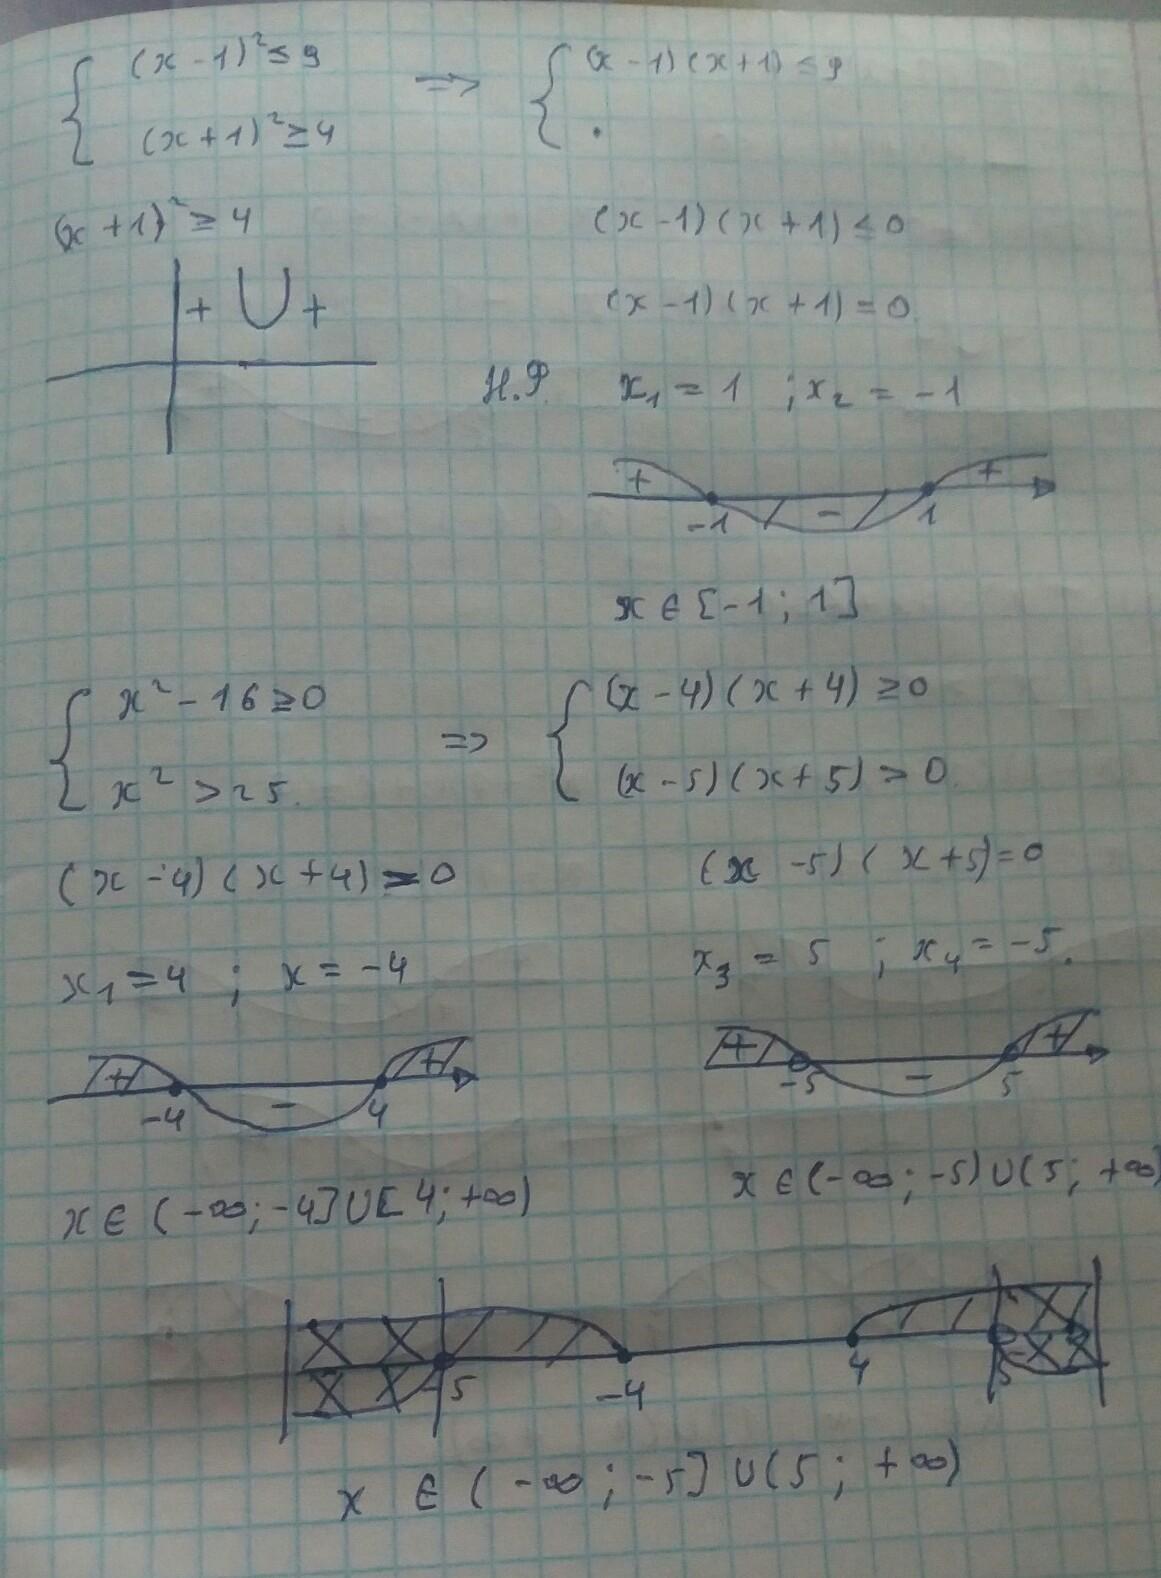 (x - 1)² ≤ 9 => (x - 1)(x + 1) ≤ 9
(x + 1)² ≥ 4 .
(x + 1)² ≥ 4 (x - 1)(x + 1) ≤ 0
+ + (x - 1)(x + 1) = 0
Н.Ф. x₁ = 1 ; x₂ = -1
+ - +
-1 1
x ∈ [-1; 1]
x² - 16 ≥ 0 => (x - 4)(x + 4) ≥ 0
x² > 25. (x - 5)(x + 5) > 0.
(x - 4)(x + 4) = 0 (x - 5)(x + 5) = 0
x₁ = 4 ; x = -4 x₃ = 5 ; x₄ = -5.
+ - + + - +
-4 4 -5 5
x ∈ (-∞; -4] ∪ [4; +∞) x ∈ (-∞; -5) ∪ (5; +∞)
-5 -4 4 5
x ∈ (-∞; -5] ∪ (5; +∞)